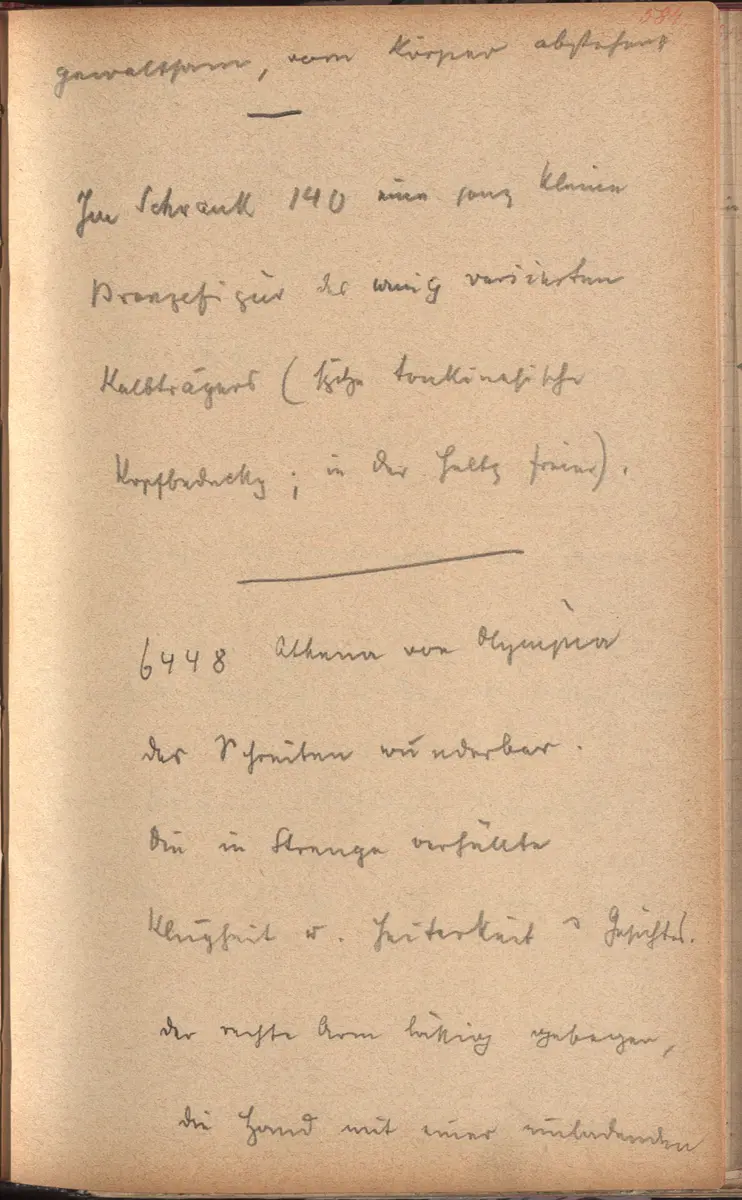 584
gewaltsam, vom Körper abstehend
Im Schrank 140 eine ganz kleine
Bronzefigur des wenig variierten
Kalbträgers ( tonkinesische
Kopfbedeckg; in der Haltg freier).
6448 Athena von Olympia
das Schreiten wunderbar.
Die in Strenge verhüllte
Klugheit u. Heiterkeit d Gesichtes.
der rechte Arm gebogen,
die Hand mit einer einladenden